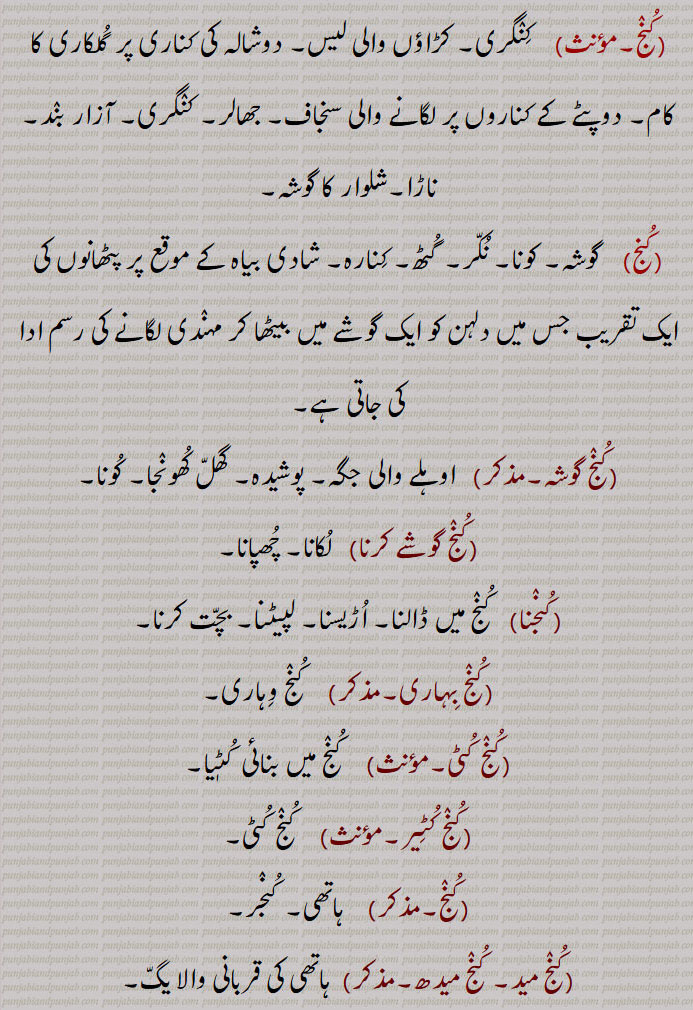 (کُنْج۔مؤنث) کِنْگری۔ کڑاؤں والی لیس۔ دوشالہ کی کناری پر گُلکاری کا
کام۔ دوپٹے کے کناروں پر لگانے والی سنجاف۔ جھالر۔ کنْگری۔ آزار بنْد۔
ناڑا۔شلوار کا گوشہ۔
(کُنج) گوشہ۔ کونا۔ نُکّر۔ گُٹھ۔ کِنارہ۔ شادی بیاہ کے موقع پر پٹھانوں کی
ایک تقریب جس میں دلہن کو ایک گوشے میں بیٹھا کر مہنْدی لگانے کی رسم ادا
کی جاتی ہے۔
(کُنْج گوشہ۔مذکر) اوہلے والی جگہ۔ پوشیدہ۔ گھلّ کُھونْجا۔ کُونا۔
(کُنْج گوشے کرنا) لُکانا۔ چُھپانا۔
(کُنْجنا) کُنْج میں ڈالنا۔ اُڑیسنا۔ لپیٹنا۔ بچّت کرنا۔
(کُنْج بِہاری۔مذکر) کُنْج وِہاری۔
(کُنْج کُٹی۔مؤنث) کُنْج میں بنائی کُٹِیا۔
(کُنْج کُٹِیر۔مؤنث) کُنْج کُٹی۔
(کُنْج۔مذکر) ہاتھی۔ کُنْجر۔
(کُنْج مید۔ کُنْج میدھ۔مذکر) ہاتھی کی قربانی والا یگّ۔